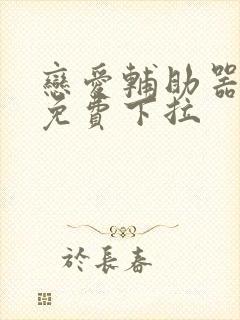 戀愛輔助器
免費下拉
於長春